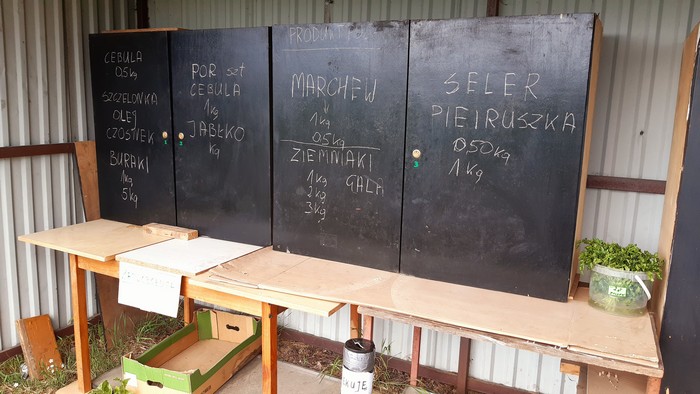 CEBULA
0,5kg
SZCZELONKA
OLEJ
CZOSNEK
BURAKI
1kg
5kg
POR szt
CEBULA
1kg
JABŁKO
kg
MARCHEW
1kg
0,5kg
ZIEMNIAKI
1kg GALA
2kg
3kg
SELER
PIEIRUSZKA
0,50kg
1kg